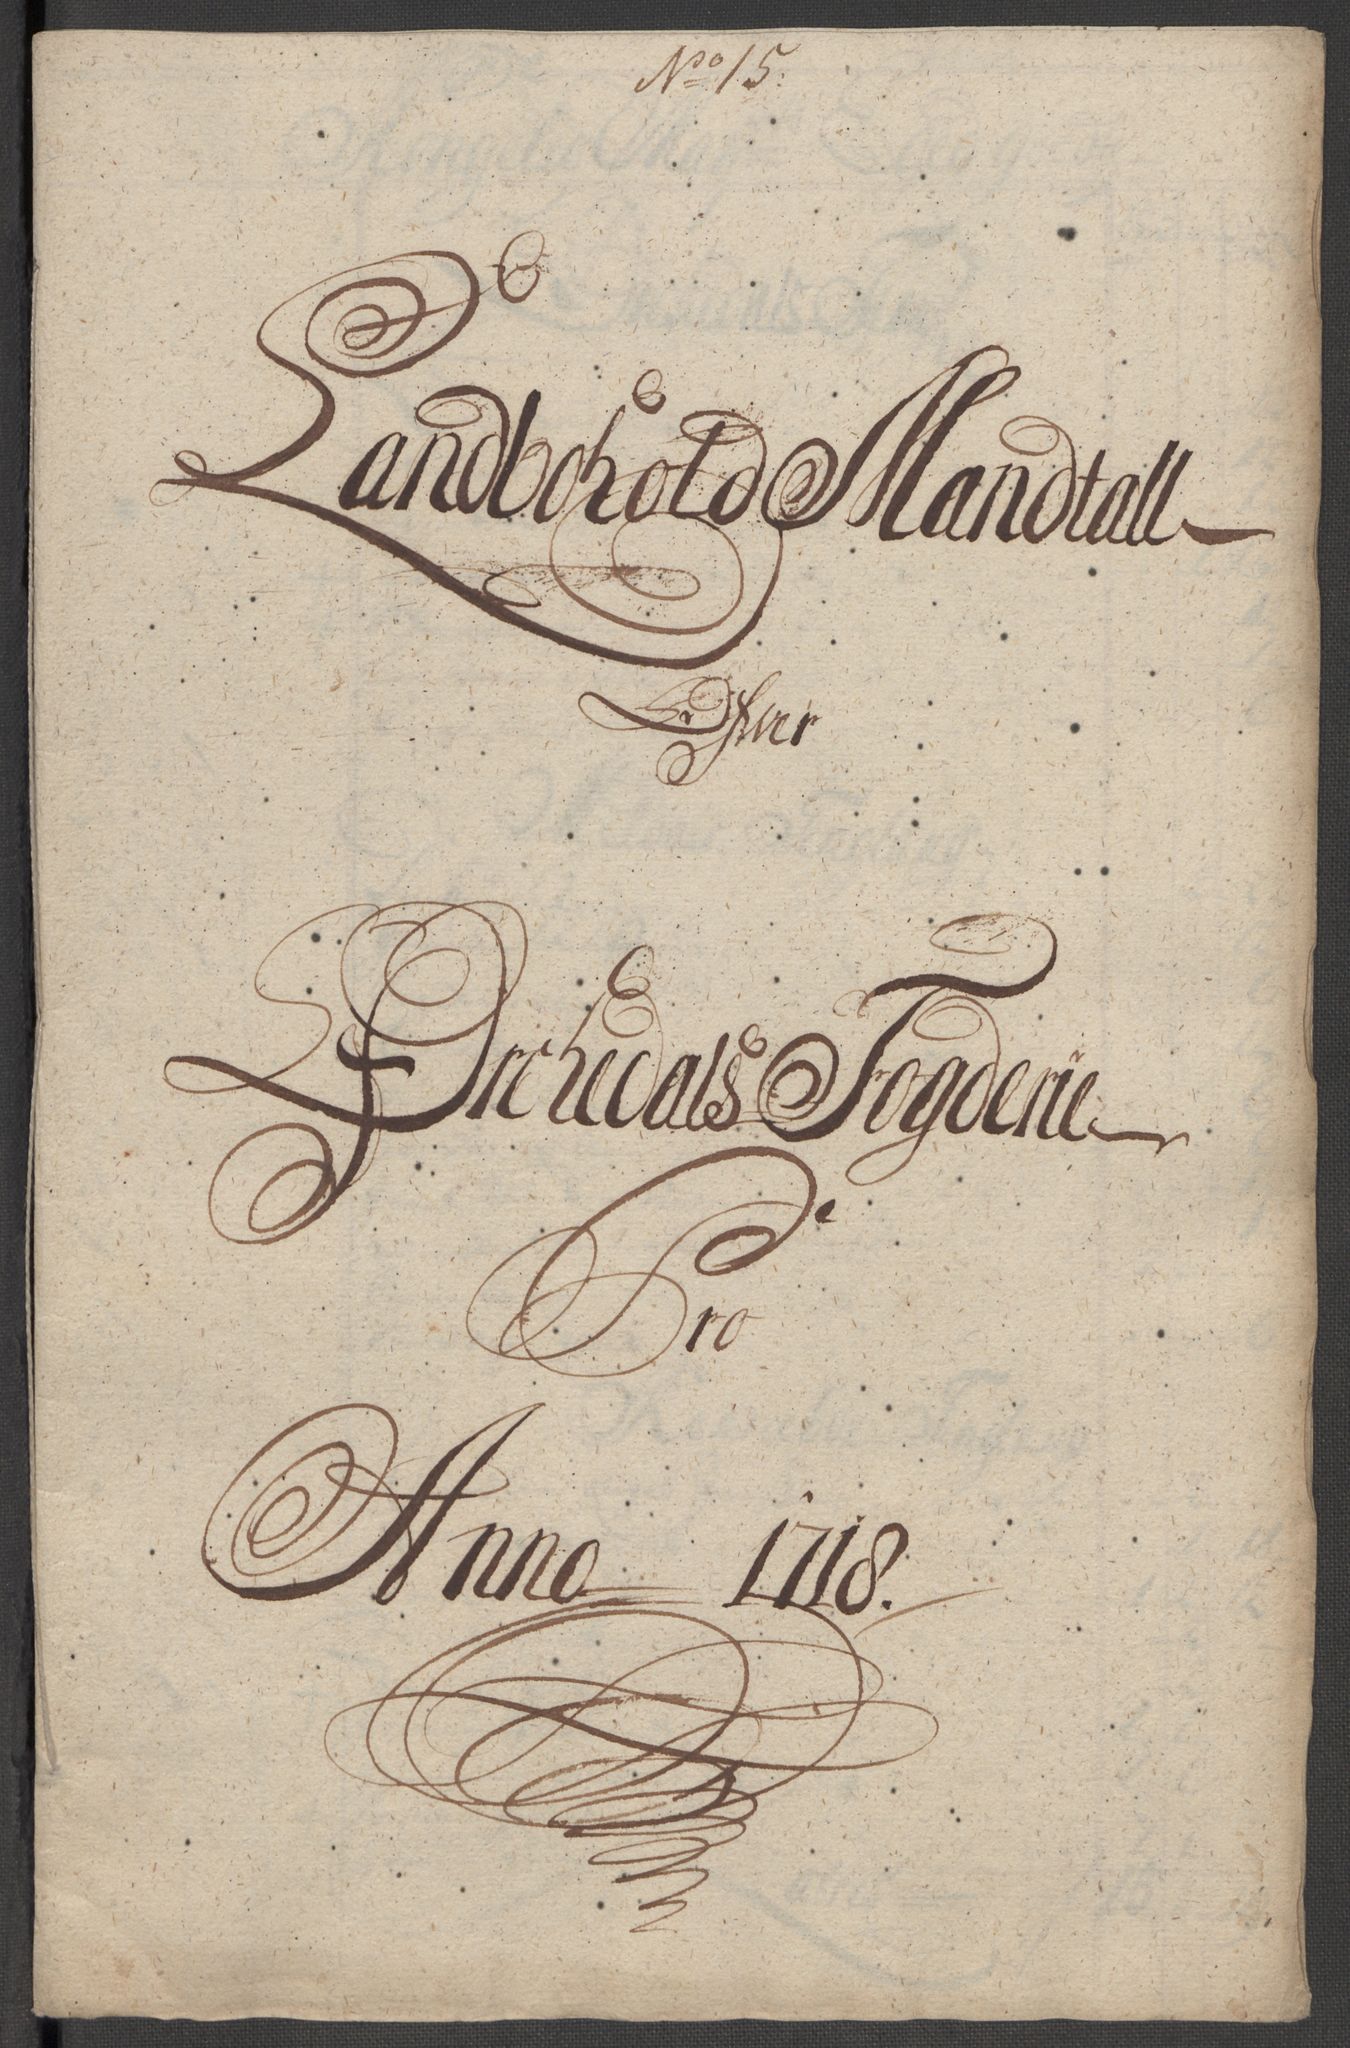 No 15.
Landbohold Mandtall
Ofver
Orchedals Fogderie
Pro
Anno 1718.